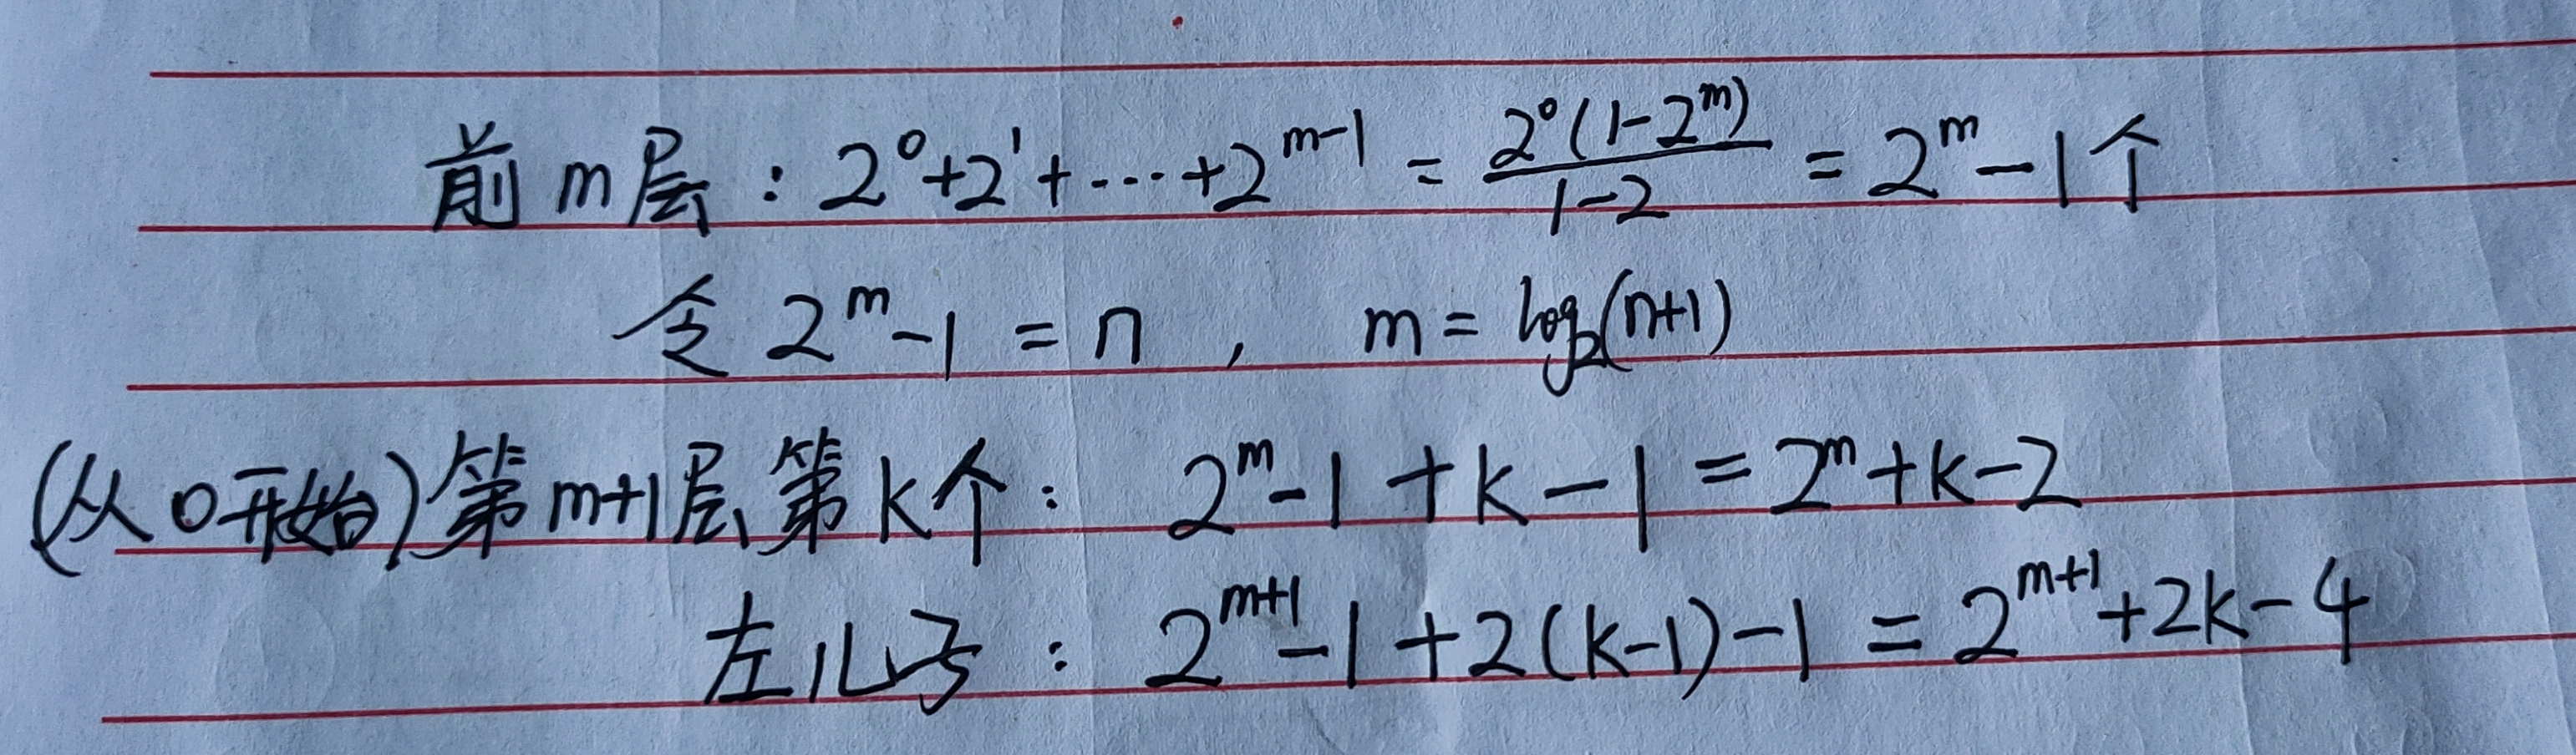 前m层：2⁰+2¹+⋯+2^(m-1) = 2⁰(1-2^m)/(1-2) = 2^m-1个
令 2^m-1=n， m=log₂(n+1)
(从0开始)第m+1层第k个：2^m-1+k-1=2^m+k-2
左儿子：2^(m+1)-1+2(k-1)-1=2^(m+1)+2k-4